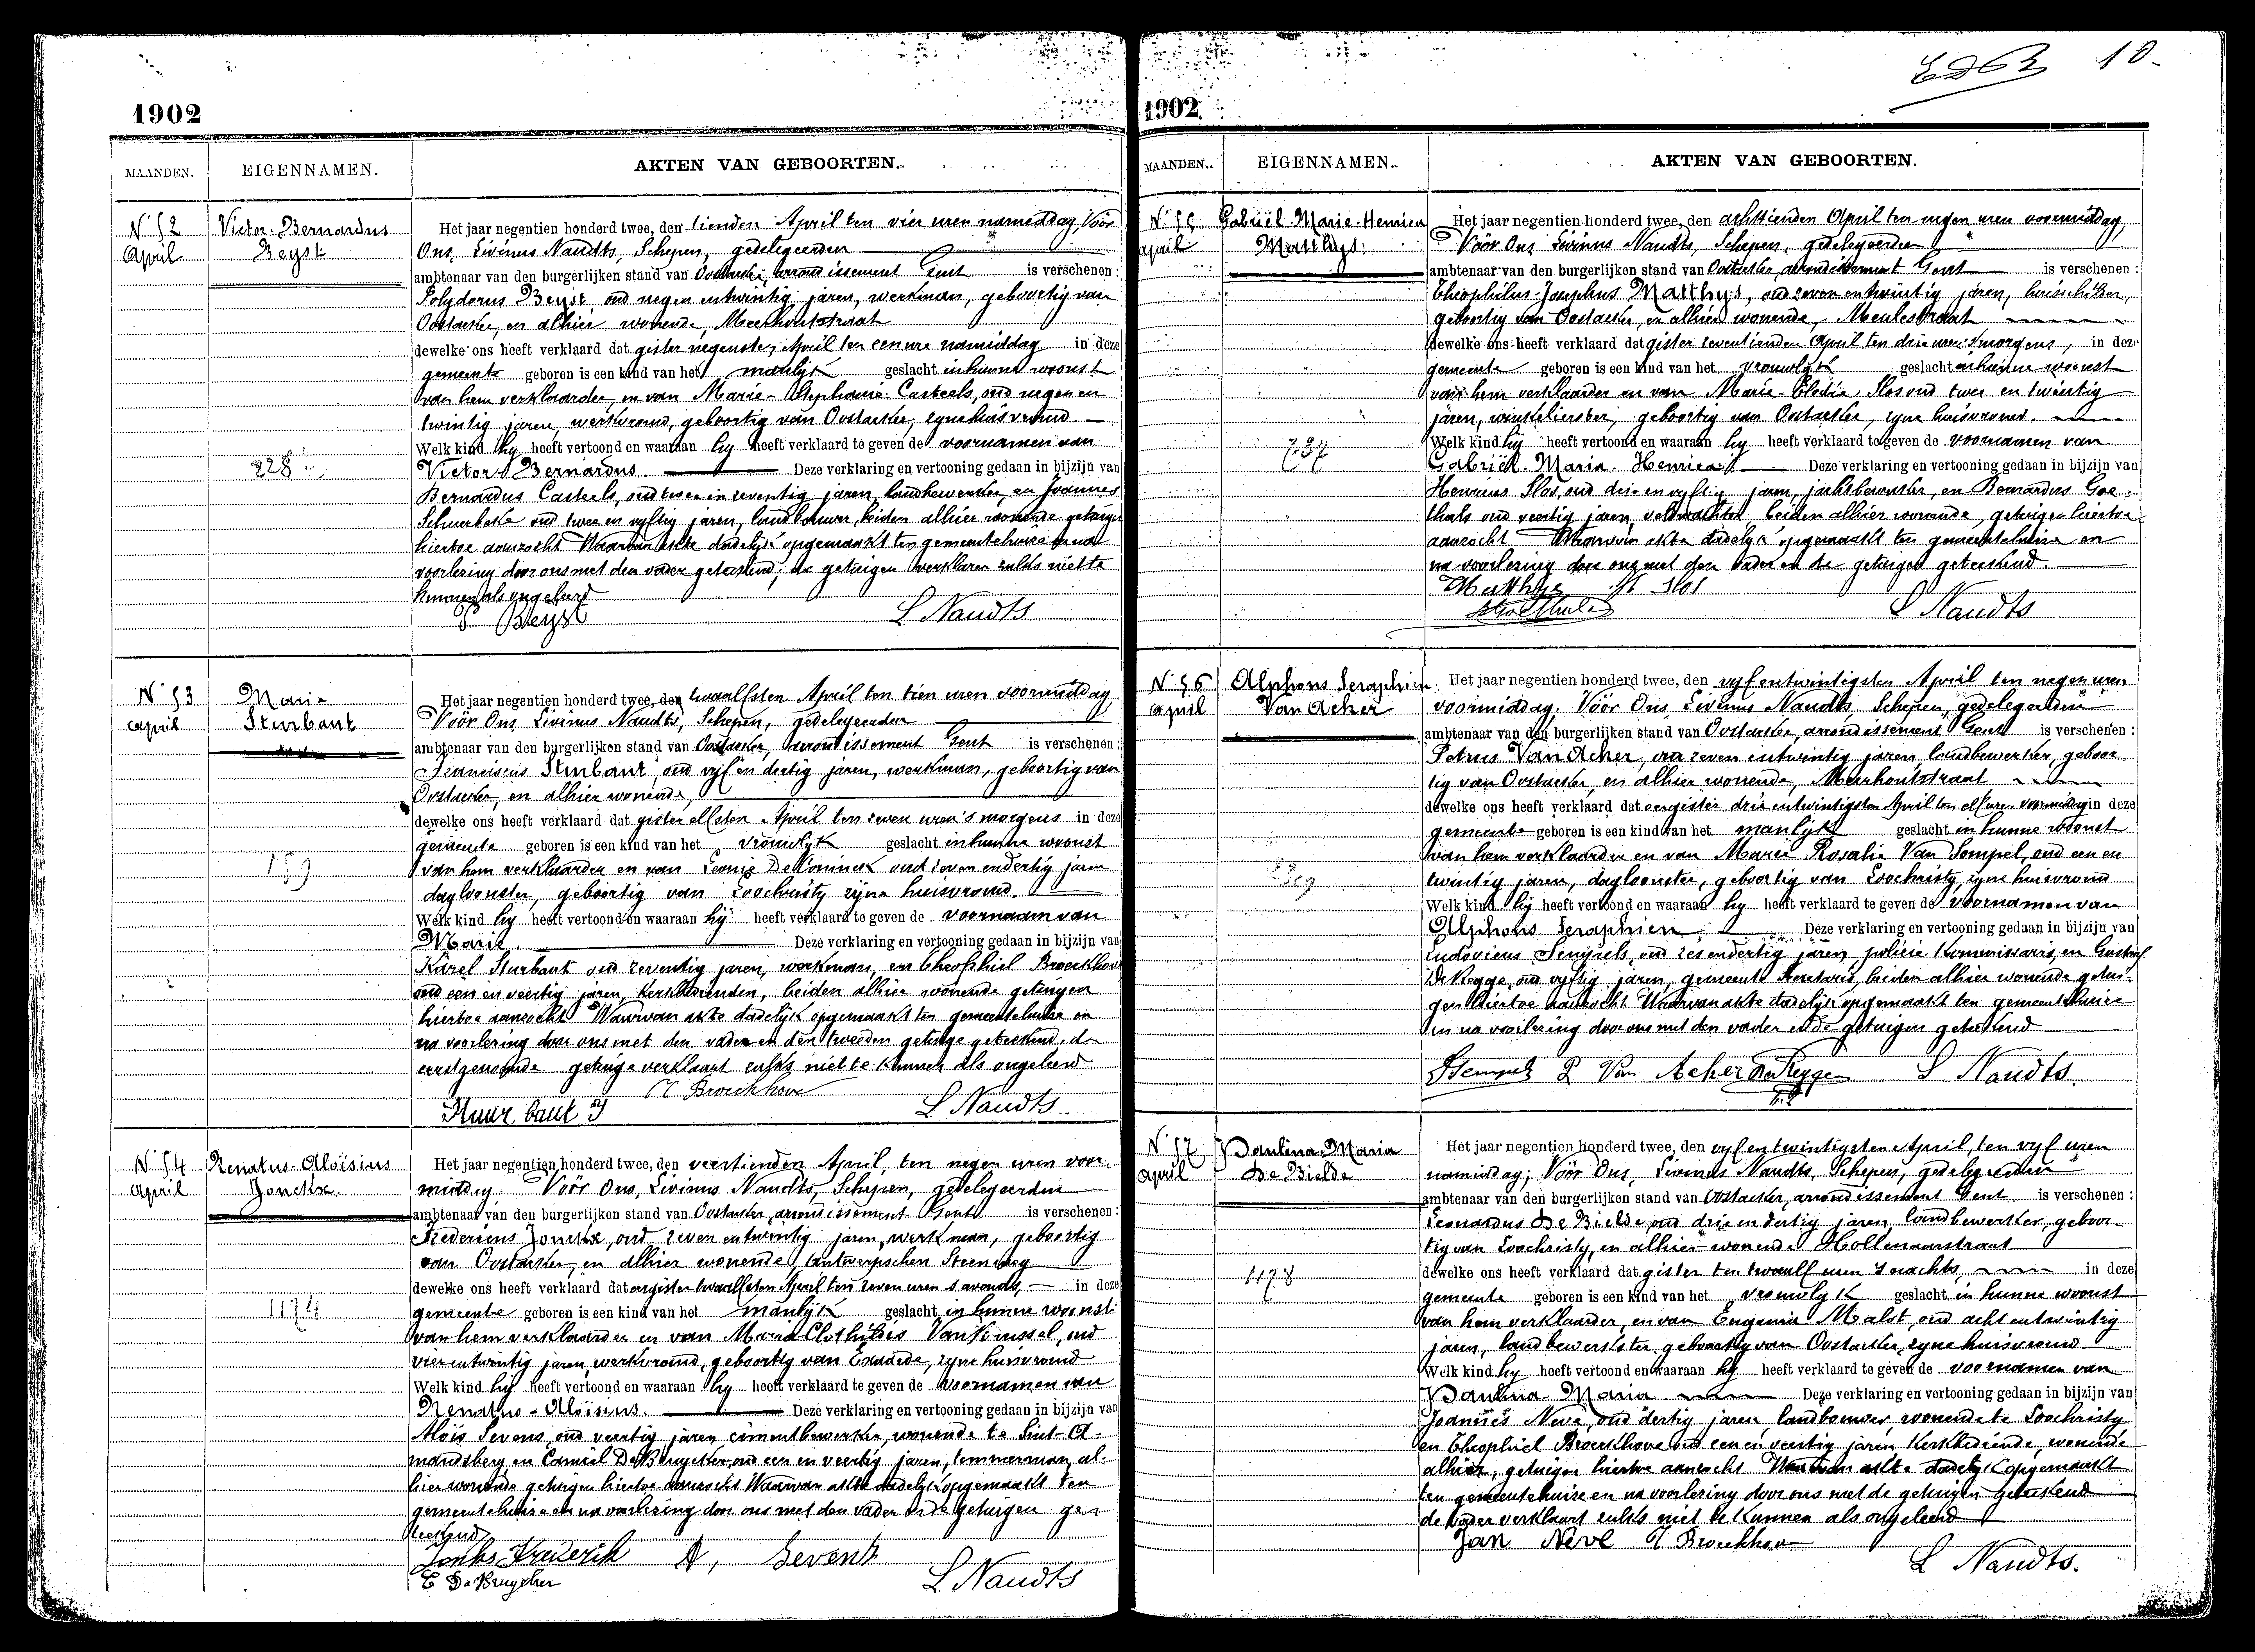 1902
MAANDEN. EIGENNAMEN. AKTEN VAN GEBOORTEN.
N 52
April
Victor-Bernardus
Beyst
228
Het jaar negentien honderd twee, den tienden April ten vier uren namiddag, Vóór
Ons, Livinus Naudts, Schepen, gedelegeerden
ambtenaar van den burgerlijken stand van Oostacker, arrondissement Gent is verschenen :
Polydorus Beyst oud negen entwintig jaren, werkman, geboortig van
Oostacker, en alhier wonende, Meerhoutstraat
dewelke ons heeft verklaard dat gister negensten April ten eene ure namiddag in deze
gemeente geboren is een kind van het manlijk geslacht in hunne woonst
van hem verklaarder, en van Marie-Stephanie Casteels, oud negen en
twintig jaren, werkvrouw, geboortig van Oostacker, zyne huisvrouw
Welk kind hy heeft vertoond en waaraan hy heeft verklaard te geven de voornamen van
Victor Bernardus. Deze verklaring en vertooning gedaan in bijzijn van
Bernardus Casteels, oud twee en zeventig jaren, landbewerker, en Joannes
oud twee en vyftig jaren, landbouwer, beiden alhier wonende getuigen
hiertoe aanzocht Waarvan akte dadelijk opgemaakt ten gemeentehuize en na
voorlezing door ons met den vader geteekend; de getuigen verklaren zulks niet te
kunnen als ongeleerd
P Beyst L Naudts
N 53
April
Maria
Sturbaut
159
Het jaar negentien honderd twee, den twaalfsten April ten tien uren voormiddag
Vóór Ons Livinus Naudts, Schepen, gedelegeerden
ambtenaar van den burgerlijken stand van Oostacker, arrondissement Gent is verschenen :
Franciscus Sturbaut, oud vijf en dertig jaren, werkman, geboortig van
Oostacker, en alhier wonende,
dewelke ons heeft verklaard dat gister elfsten April ten zeven uren 's morgens in deze
gemeente geboren is een kind van het vrouwlijk geslacht in hunne woonst
van hem verklaarder en van Leonie De Koninck oud zeven endertig jaren
dagloonster, geboortig van Loochristy zyne huisvrouw.
Welk kind hy heeft vertoond en waaraan hij heeft verklaard te geven de voornaam van
Marie. Deze verklaring en vertooning gedaan in bijzijn van
Karel Sturbaut oud zeventig jaren, werkman, en Theophiel Broeckhove
oud een en veertig jaren, kerkbediende, beiden alhier wonende getuigen
hiertoe aanzocht Waarvan akte dadelijk opgemaakt ten gemeentehuize en
na voorlezing door ons met den vader en den tweeden getuige geteekend, de
eerstgenoemde getuige verklaart zulks niet te kunnen als ongeleerd
T Broeckhove
Stuur baut F L Naudts
N 54
April
Renatus-Aloïsius
Jonckx
1174
Het jaar negentien honderd twee, den veertienden April, ten negen uren voor-
middag. Vóór Ons, Livinus Naudts, Schepen, gedelegeerden
ambtenaar van den burgerlijken stand van Oostacker, arrondissement Gent is verschenen :
Fredericus Jonckx, oud zeven entwintig jaren, werkman, geboortig
van Oostacker, en alhier wonende, Antwerpschen Steenweg
dewelke ons heeft verklaard dat eergister twaalfsten April ten zeven uren 's avonds, in deze
gemeente geboren is een kind van het manlijk geslacht in hunne woonst
van hem verklaarder en van Maria Clothildis Van oud
vier entwintig jaren, werkvrouw, geboortig van Exaarde, zyne huisvrouw
Welk kind hy heeft vertoond en waaraan hy heeft verklaard te geven de voornamen van
Renatus-Aloïsius. Deze verklaring en vertooning gedaan in bijzijn van
Aloïs Sevens, oud veertig jaren cimentbewerker, wonende te Sint-A-
mandsberg en Camiel De Bruycker oud een en veertig jaren, temmerman, al-
hier wonende getuigen hiertoe aanzocht Waarvan akte dadelyk opgemaakt ten
gemeentehuize en na voorlezing door ons met den vader en de getuigen ge-
teekend
Jonks Frederik A, Sevens
C De Bruycker L. Naudts
10
1902.
MAANDEN. EIGENNAMEN. AKTEN VAN GEBOORTEN.
N 55
April
Gabriël-Marie-Henrica
Matthys.
737
Het jaar negentien honderd twee, den achttienden April ten negen uren voormiddag,
Vóór Ons Livinus Naudts, Schepen, gedelegeerden
ambtenaar van den burgerlijken stand van Oostacker, arrondissement Gent is verschenen :
Theophilus-Josephus Matthys, oud zeven entwintig jaren, huisschilder,
geboortig van Oostacker, en alhier wonende, Meulestraat
dewelke ons heeft verklaard dat gister zeventienden April ten drie uren 's morgens, in deze
gemeente geboren is een kind van het vrouwlyk geslacht in hunne woonst
van hem verklaarder en van Marie-Elodie Slos oud twee en twintig
jaren, winkelierster, geboortig van Oostacker, zyne huisvrouw.
Welk kind hij heeft vertoond en waaraan hij heeft verklaard te geven de voornamen van
Gabriël-Maria-Henrica Deze verklaring en vertooning gedaan in bijzijn van
Henricus Slos, oud drie en vyftig jaren, jachtbewaker, en Bernardus Goe-
thals oud veertig jaren, veldwachter beiden alhier wonende, getuigen hiertoe
aanzocht Waarvan akte dadelyk opgemaakt ten gemeentehuize en
na voorlezing door ons met den vader en de getuigen geteekend.
Matthys H Slos
L Naudts
N 56
April
Alphons Seraphien
Van Acker
Het jaar negentien honderd twee, den vyf entwintigsten April ten negen uren
voormiddag. Vóór Ons, Livinus Naudts, Schepen, gedelegeerden
ambtenaar van den burgerlijken stand van Oostacker, arrondissement Gent is verschenen :
Petrus Van Acker, oud zeven entwintig jaren, landbewerker, geboor-
tig van Oostacker, en alhier wonende, Meerhoutstraat
dewelke ons heeft verklaard dat eergister drie entwintigsten April ten elf uren voormiddag in deze
gemeente geboren is een kind van het manlyk geslacht in hunne woonst
van hem verklaarder en van Marie Rosalie Van Sompel, oud een en
twintig jaren, dagloonster, geboortig van Loochristy, zyne huisvrouw
Welk kind hij heeft vertoond en waaraan hy heeft verklaard te geven de voornamen van
Alphons Seraphien Deze verklaring en vertooning gedaan in bijzijn van
Ludovicus oud zes endertig jaren, policie kommissaris, en Gustaaf
De Regge, oud vyftig jaren, gemeente secretaris, beiden alhier wonende getui-
gen hiertoe aanzocht Waarvan akte dadelyk opgemaakt ten gemeentehuize
en na voorlezing door ons met den vader en de getuigen geteekend
P Van Acker De Regge L Naudts.
N 57
April
Paulina-Maria
De Bielde
1178
Het jaar negentien honderd twee, den vyf en twintigsten April, ten vyf uren
namiddag; Vóór Ons, Livinus Naudts, Schepen, gedelegeerden
ambtenaar van den burgerlijken stand van Oostacker, arrondissement Gent is verschenen :
Leonardus De Bielde, oud drie en dertig jaren, landbewerker, geboor-
tig van Loochristy, en alhier wonende Hollenaarstraat
dewelke ons heeft verklaard dat gister ten twaalf uren 's nachts, in deze
gemeente geboren is een kind van het vrouwlyk geslacht in hunne woonst
van hem verklaarder, en van Eugenia Malst, oud acht entwintig
jaren, landbewerkster, geboortig van Oostacker, zyne huisvrouw
Welk kind hy heeft vertoond en waaraan hy heeft verklaard te geven de voornamen van
Paulina-Maria Deze verklaring en vertooning gedaan in bijzijn van
Joannes Neve, oud dertig jaren landbouwer, wonende te Loochristy
en Theophiel Broeckhove oud een en veertig jaren Kerkbediende, wonende
alhier, getuigen hiertoe aanzocht Waarvan akte dadelyk opgemaakt
ten gemeentehuize en na voorlezing door ons met de getuigen geteekend
de vader verklaart zulks niet te kunnen als ongeleerd
Jan Neve T Broeckhove
L Naudts.